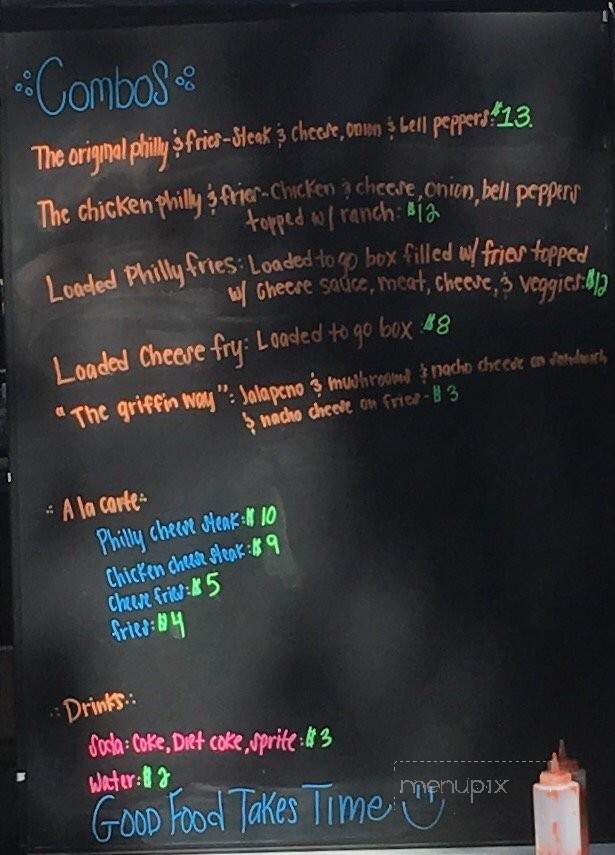 Combos
The original philly & fries - Steak & cheese, onion & bell peppers: $13.
The chicken philly & fries - Chicken & cheese, onion, bell peppers
topped w/ ranch: $12
Loaded Philly fries: Loaded to go box filled w/ fries topped
w/ cheese sauce, meat, cheese, & veggies: $12
Loaded Cheese fry: Loaded to go box: $8
"The griffin way": Jalapeno & mushrooms & nacho cheese on sandwich
& nacho cheese on fries - $3
A la carte
Philly cheese steak: $10
Chicken cheese steak: $9
Cheese fries: $5
fries: $4
Drinks
Soda: Coke, Diet coke, sprite: $3
Water: $2
Good Food Takes Time
menupix